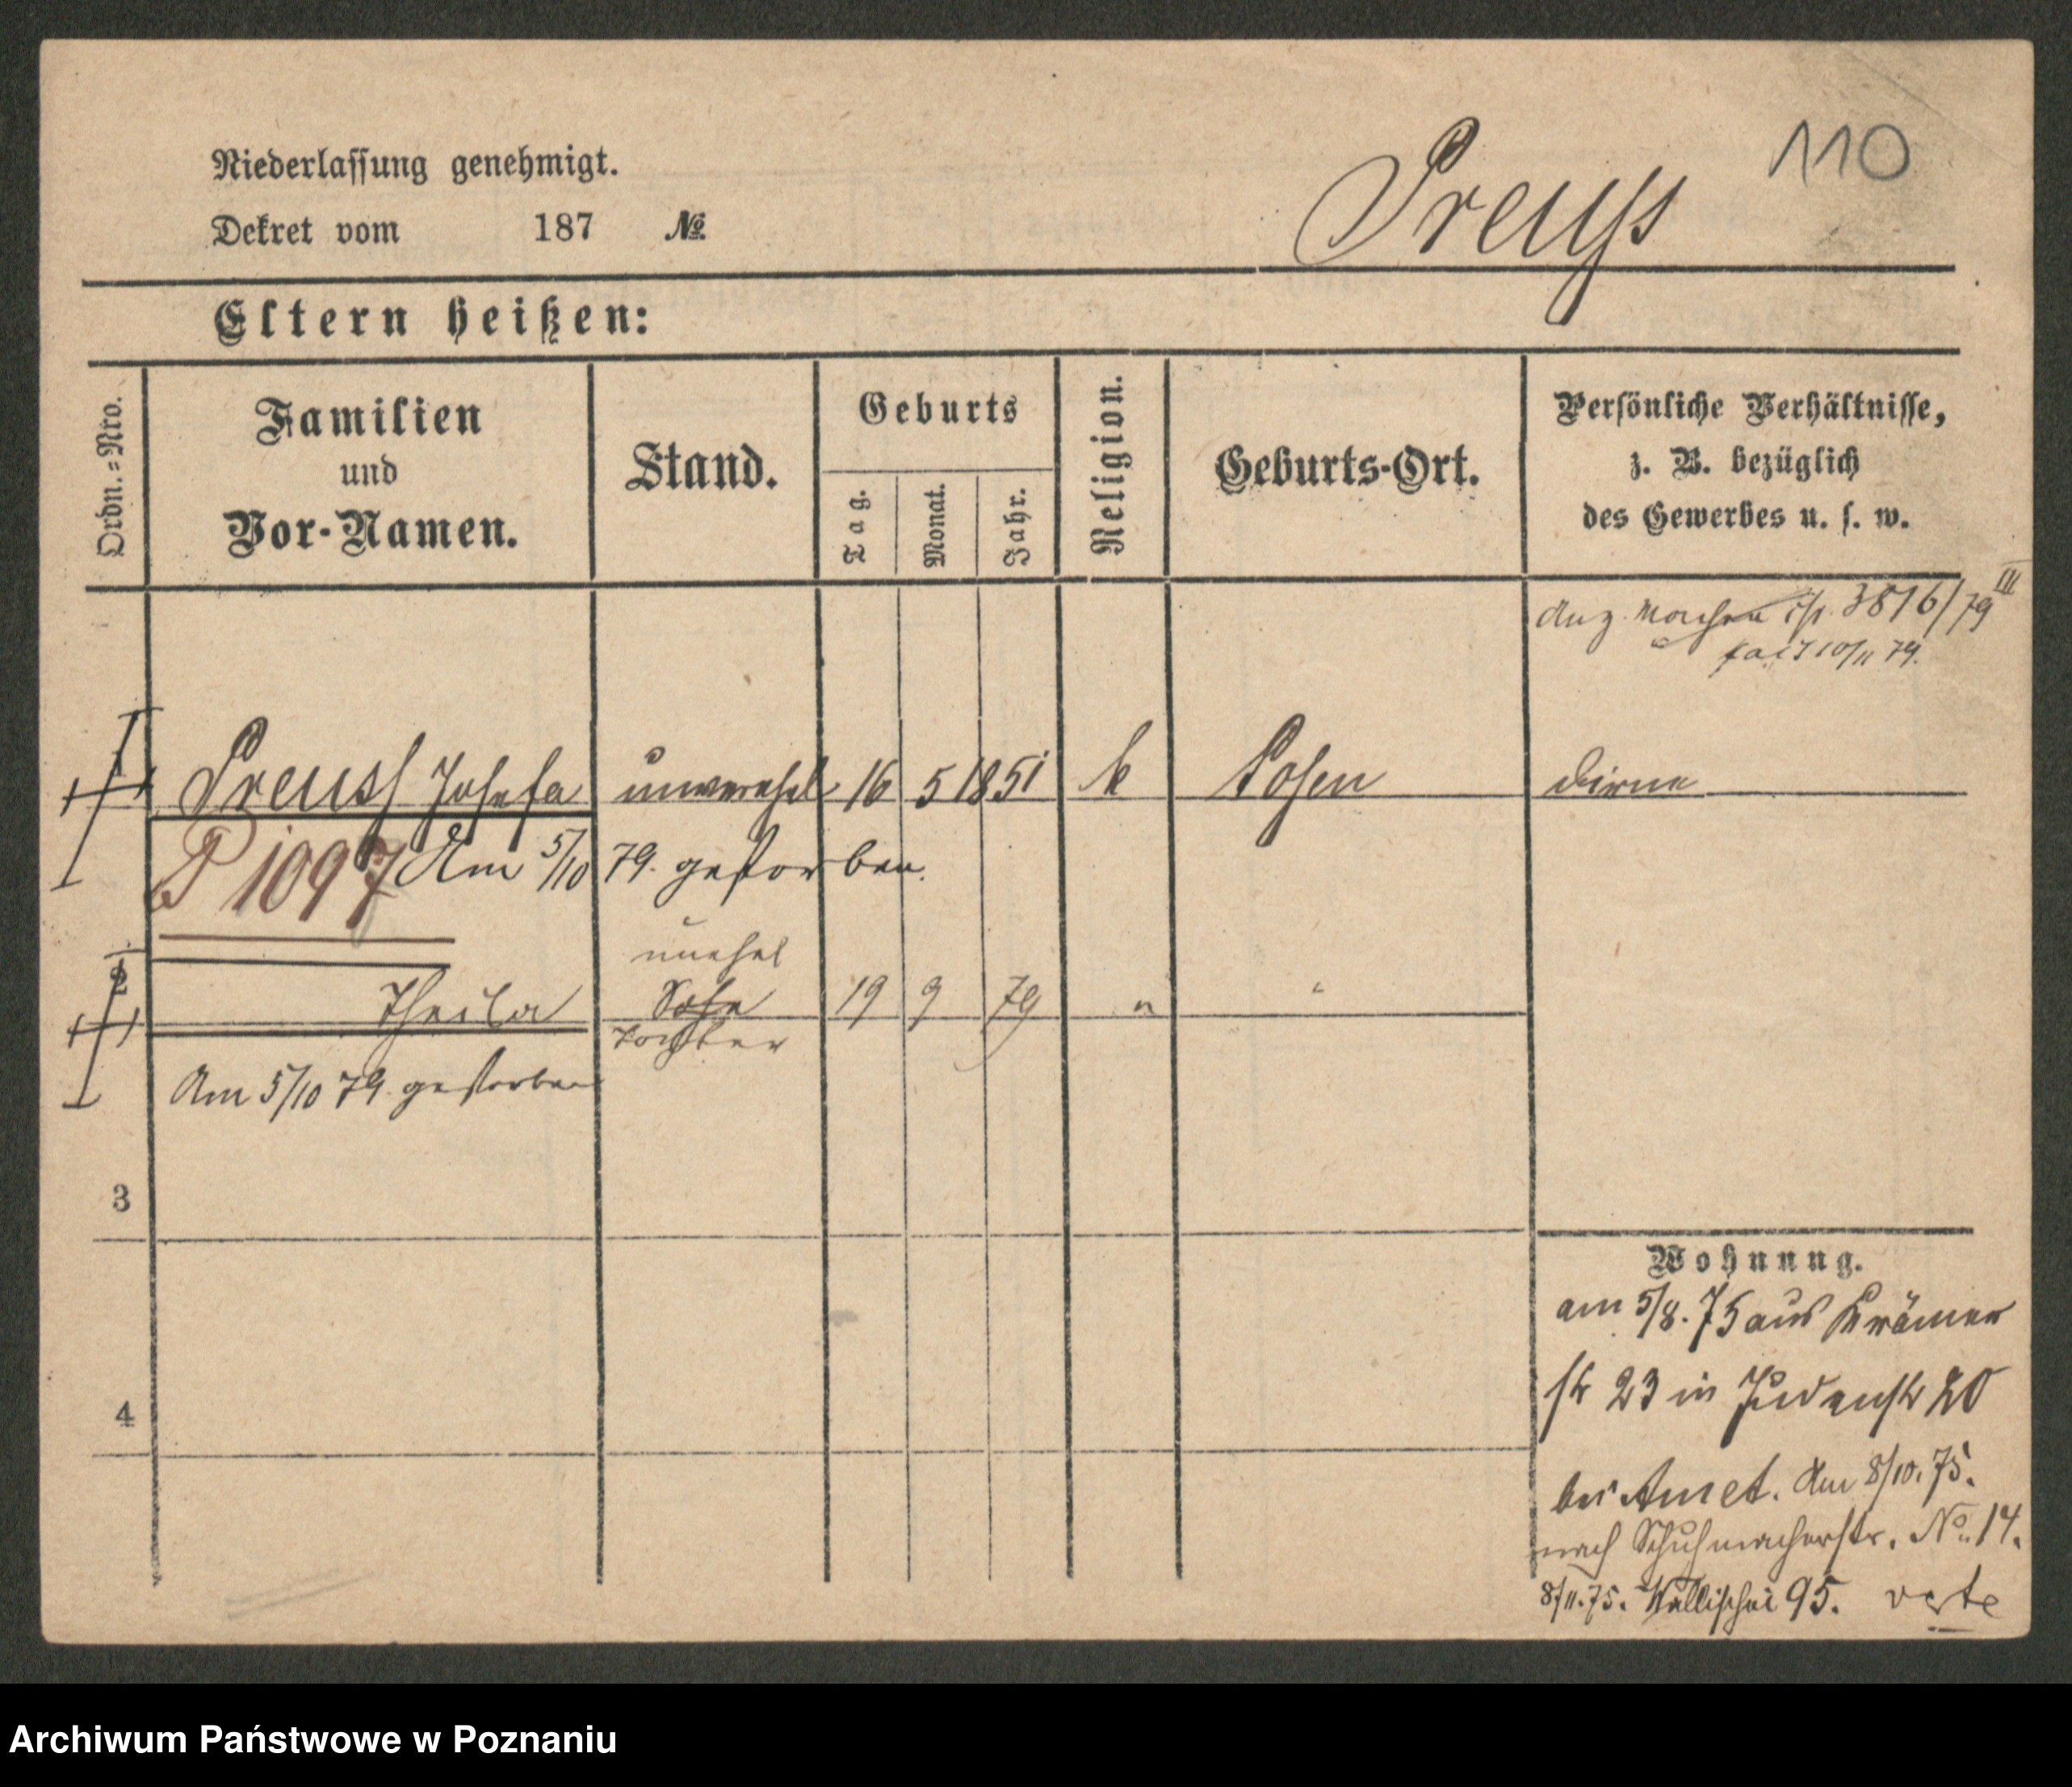 110
Preuss
Niederlassung genehmigt.
Dekret vom 187 №
Eltern heißen:
Ordn.=Nro.
Familien
und
Vor-Namen.
Stand.
Geburts
Tag.
Monat.
Jahr.
Religion.
Geburts-Ort.
Persönliche Verhältnisse,
z. B. bezüglich
des Gewerbes u. s. w.
3816/79 III
10/11 79.
Preuss Josefa unverehel 16 5 1851 k Posen Dirne
P 1097 Am 5/10 79. gestorben.
unehel
2 Theila Sohn 19 9 79 " "
Tochter
Am 5/10 79. gestorben
3
4
Wohnung.
am 5/8. 75 aus Krämer
str 23 in Judenstr 20
bei Amet. Am 8/10. 75.
nach Schuhmacherstr. No. 14.
8/11. 75. Wallischei 95. verte
Archiwum Państwowe w Poznaniu